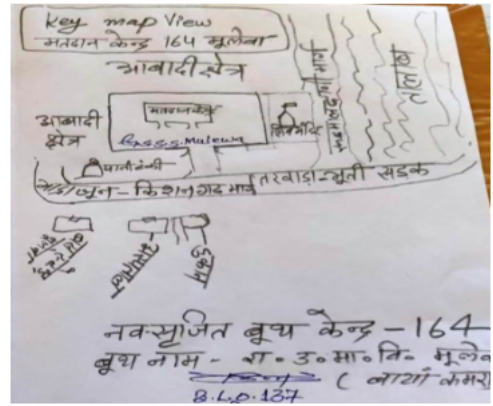 Key map View
मतदान केन्द्र 164 मूलेवा
आबादी क्षेत्र
आबादी
क्षेत्र
मतदान केन्द्र
G.S.S.S. Mulewa
शिव मंदिर
तालाब
पानी टंकी
जून - किशनगढ़ मार्ग तरवाड़ा - भूती सड़क
अस्पताल
दुकान
नवसृजित बूथ केन्द्र - 164
बूथ नाम - रा. उ. मा. वि. मूलेव
( बायाँ कमरा
B.L.O. 137